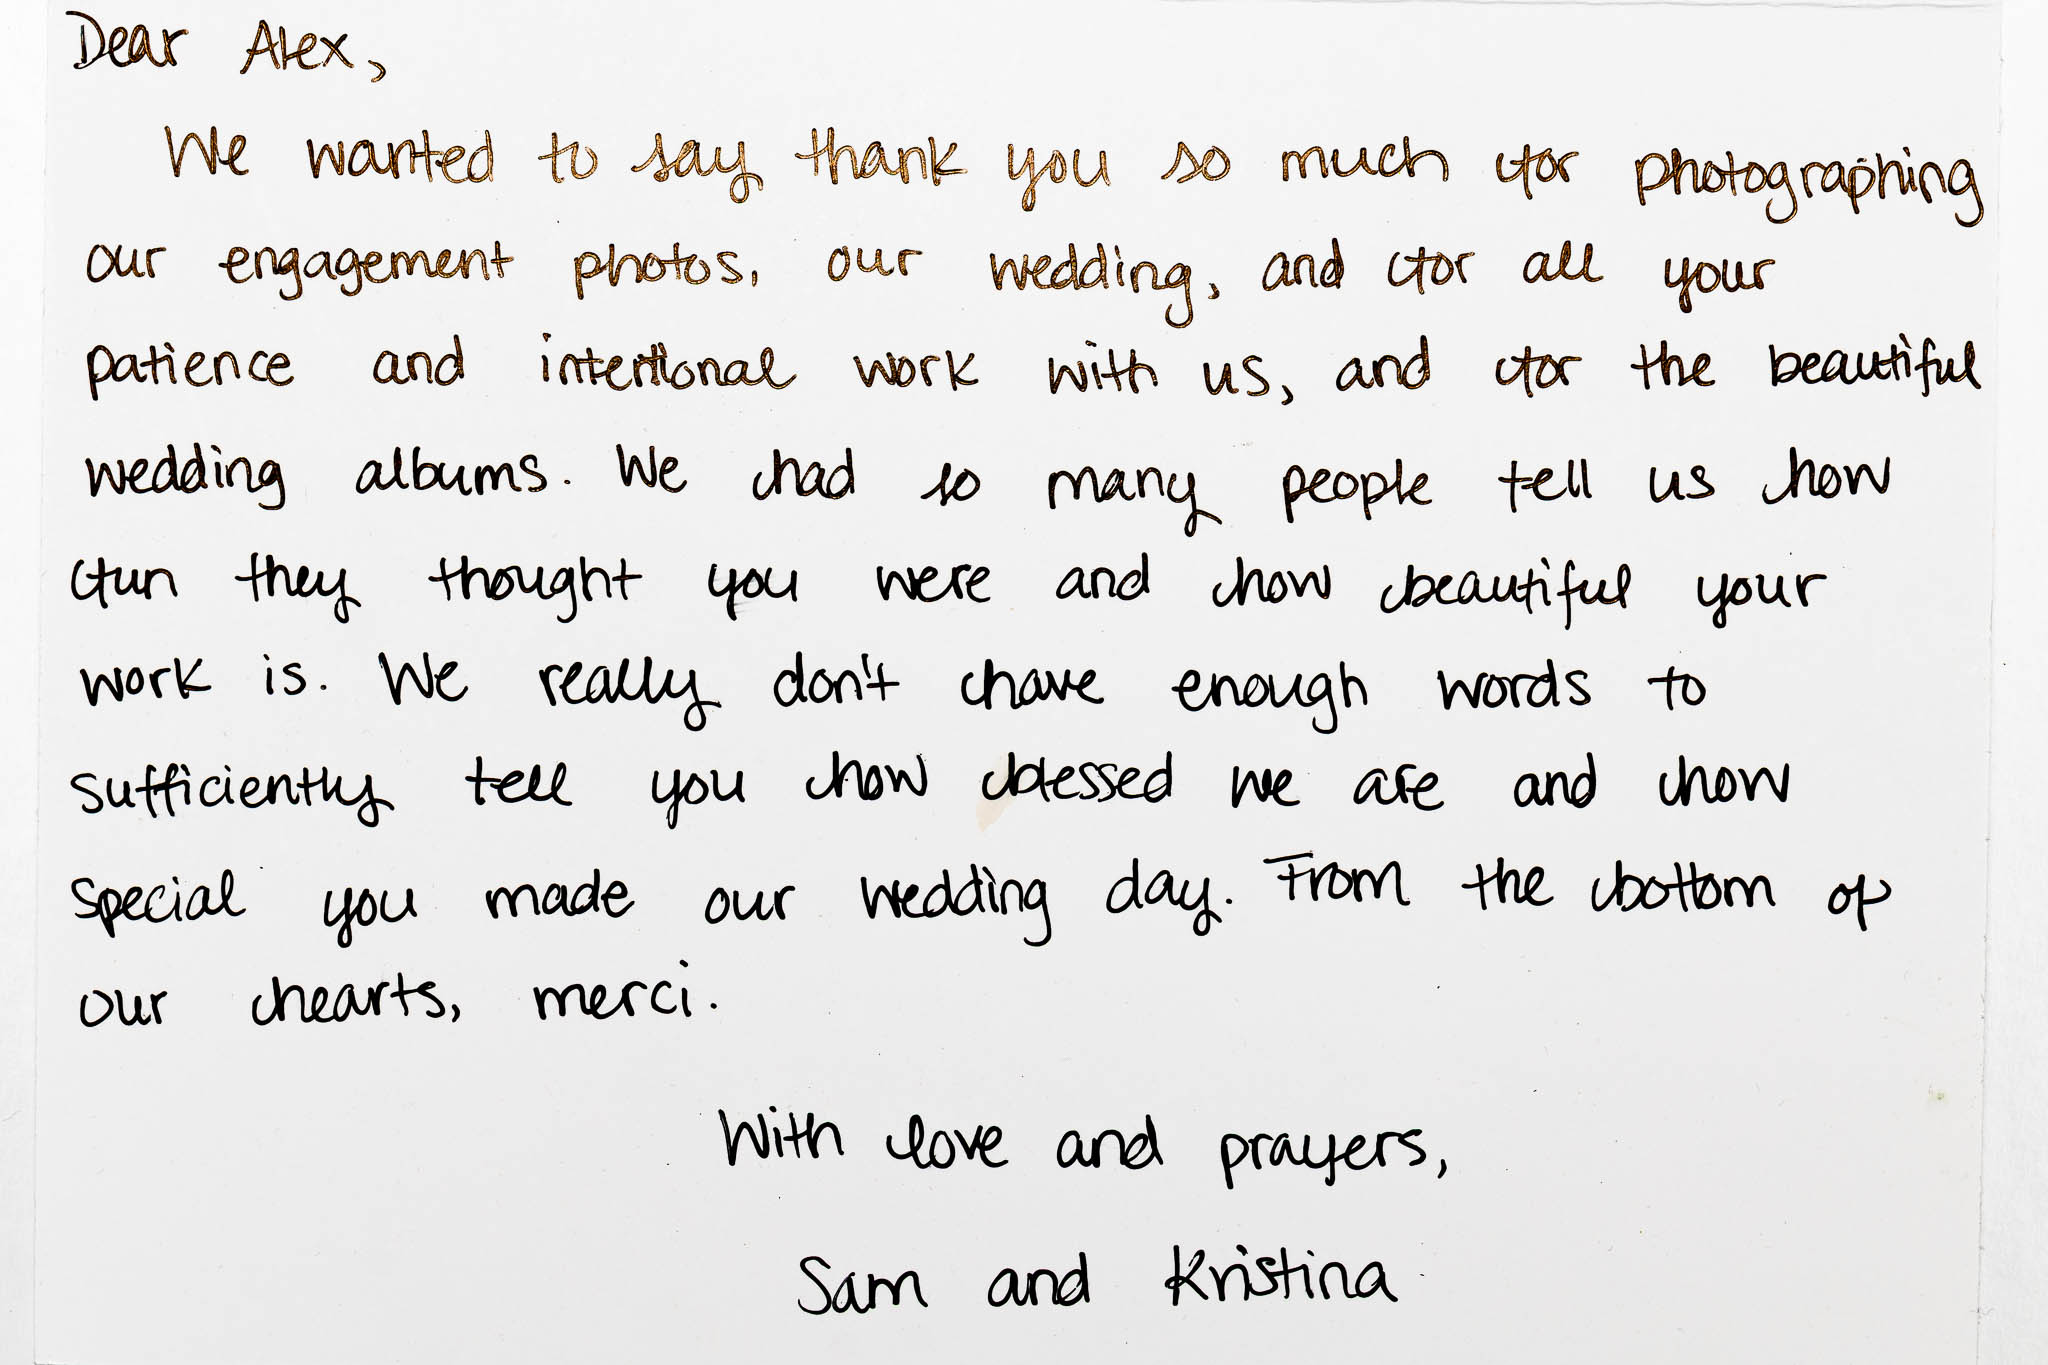 Dear Alex,
We wanted to say thank you so much for photographing
our engagement photos, our wedding, and for all your
patience and intentional work with us, and for the beautiful
wedding albums. We had so many people tell us how
fun they thought you were and how beautiful your
work is. We really don't have enough words to
sufficiently tell you how blessed we are and how
special you made our wedding day. From the bottom of
our hearts, merci.
With love and prayers,
Sam and Kristina